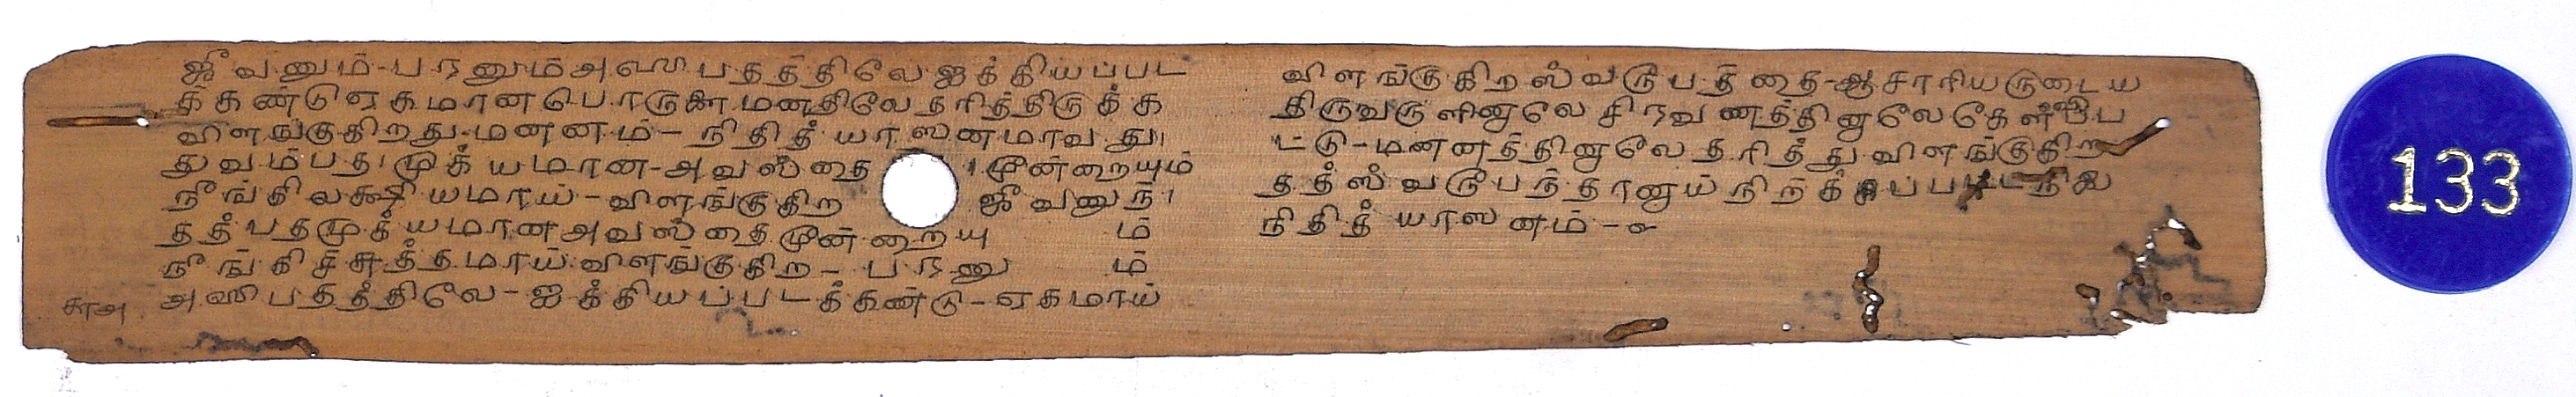 ஜீவனும்-பரனும்அஸிபதத்திலேஐக்கியப்பட
க்கண்டுஏகமானபொருளைமனதிலேதரித்திருக்க
விளங்குகிறது-மனனம்-நிதித்யாஸனமாவது।
துவம்பத।முக்யமான-அவஸ்தை ।மூன்றையும்
நீங்கிலக்ஷியமாய்-விளங்குகிற ஜீவனுந்।
தத்பதமுக்யமானஅவஸ்தைமூன்றையு ம்
நீங்கிச்சுத்தமாய்விளங்குகிற-பரனு ம்
அஸிபதத்திலே-ஐக்கியப்படக்கண்டு-ஏகமாய்
விளங்குகிறஸ்வரூபத்தை-ஆசாரியருடைய
திருவருளினாலேசிரவணத்தினாலேகேள்ப்ப
ட்டு-மனனத்தினாலேதரித்துவிளங்குகிற
தத்ஸ்வரூபந்தானாய்நிற்க்க
நிதித்யாஸனம்-
௬௰அ
133